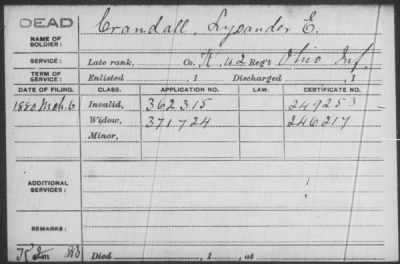 DEAD Crandall, Lysander E.
NAME OF SOLDIER:
SERVICE: Late rank, Co. K, 42 Reg't Ohio Inf.
TERM OF SERVICE: Enlisted , 1 Discharged , 1
DATE OF FILING. CLASS. APPLICATION NO. LAW. CERTIFICATE NO.
1880 Mch. 6 Invalid, 362315 249253
Widow, 371724 246217
Minor,
ADDITIONAL SERVICES:
REMARKS:
Died , 1 , at